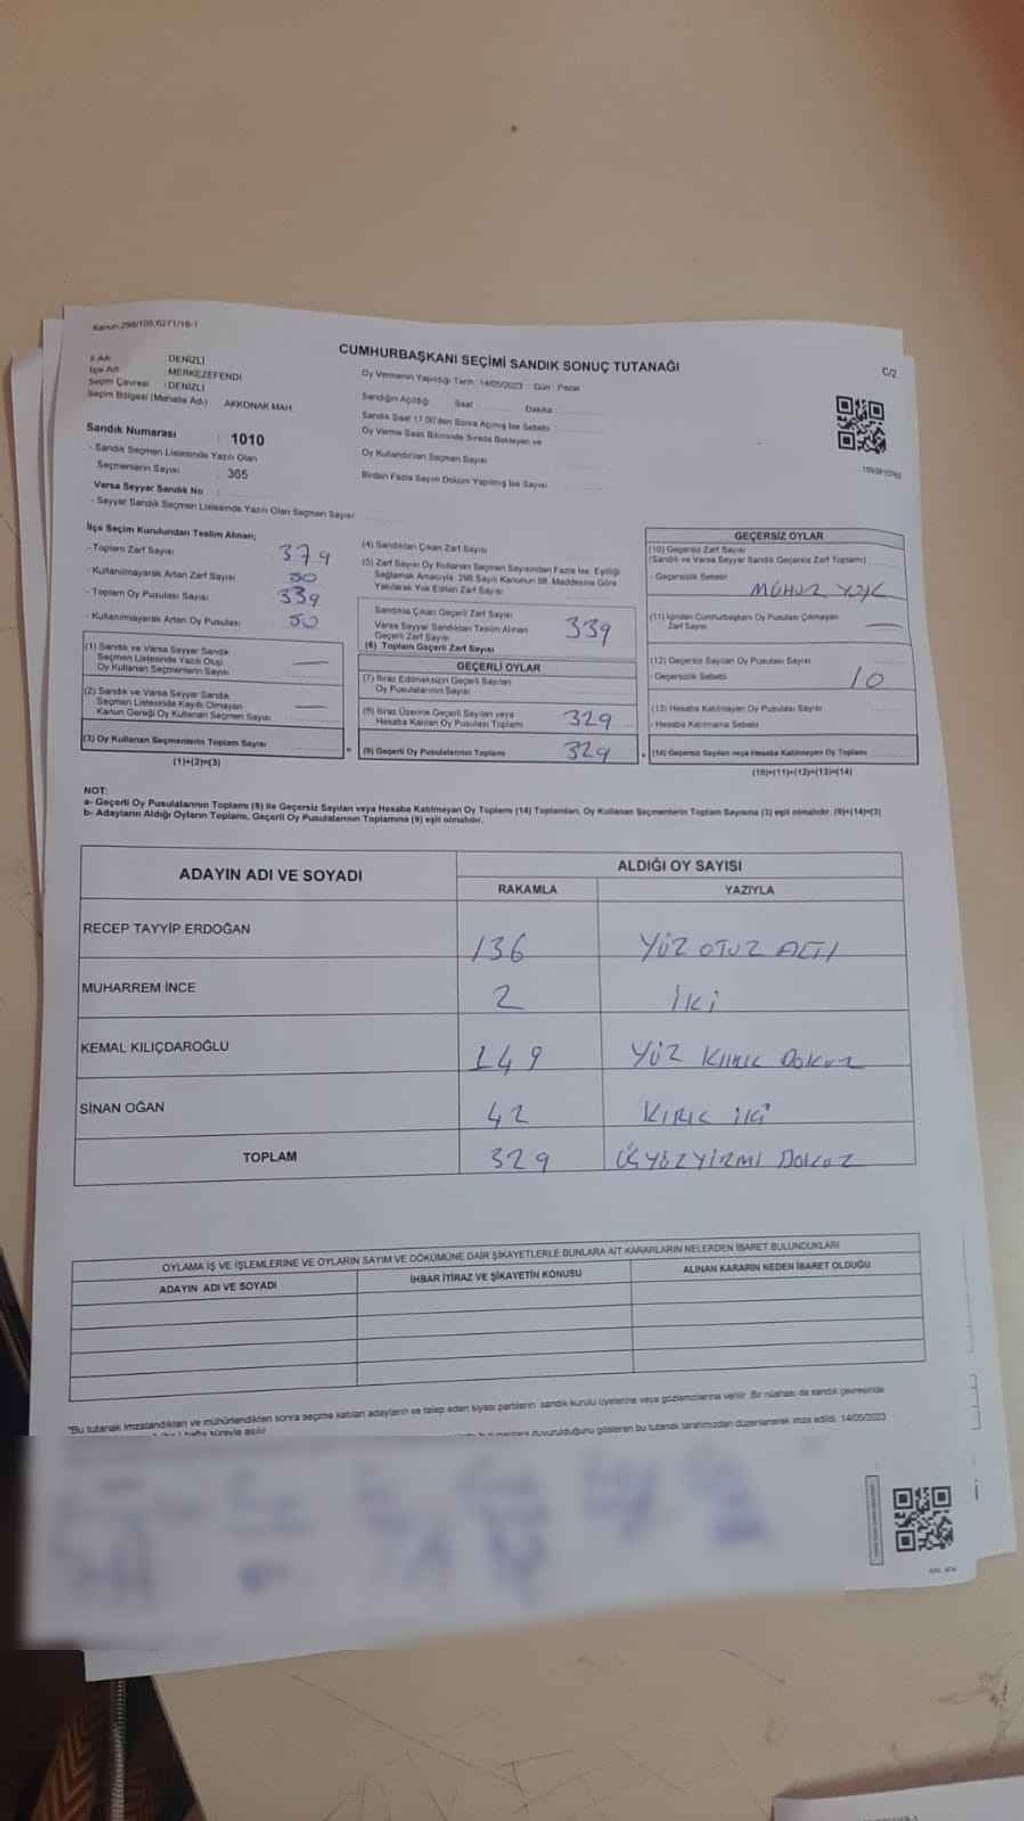 Kanun:298/105,6271/18-1
CUMHURBAŞKANI SEÇİMİ SANDIK SONUÇ TUTANAĞI
C/2
İl Adı DENİZLİ
İlçe Adı MERKEZEFENDİ
Seçim Çevresi : DENİZLİ
Seçim Bölgesi (Mahalle Adı) AKKONAK MAH
Oy Vermenin Yapıldığı Tarih: 14/05/2023 Gün: Pazar
Sandığın Açıldığı Saat Dakika
Sandık Saat 17.00'den Sonra Açılmış İse Sebebi
Oy Verme Saati Bitiminde Sırada Bekleyen ve
Oy Kullandırılan Seçmen Sayısı
Birden Fazla Sayım Döküm Yapılmış İse Sayısı
Sandık Numarası : 1010
- Sandık Seçmen Listesinde Yazılı Olan
Seçmenlerin Sayısı : 365
Varsa Seyyar Sandık No :
- Seyyar Sandık Seçmen Listesinde Yazılı Olan Seçmen Sayısı
İlçe Seçim Kurulundan Teslim Alınan;
- Toplam Zarf Sayısı 379
- Kullanılmayarak Artan Zarf Sayısı 50
- Toplam Oy Pusulası Sayısı 339
- Kullanılmayarak Artan Oy Pusulası 50
(1) Sandık ve Varsa Seyyar Sandık
Seçmen Listesinde Yazılı Olup
Oy Kullanan Seçmenlerin Sayısı —
(2) Sandık ve Varsa Seyyar Sandık
Seçmen Listesinde Kayıtlı Olmayan
Kanun Gereği Oy Kullanan Seçmen Sayısı —
(3) Oy Kullanan Seçmenlerin Toplam Sayısı
(1)+(2)=(3)
(4) Sandıktan Çıkan Zarf Sayısı
(5) Zarf Sayısı Oy Kullanan Seçmen Sayısından Fazla İse, Eşitliği
Sağlamak Amacıyla, 298 Sayılı Kanunun 98. Maddesine Göre
Yakılarak Yok Edilen Zarf Sayısı
Sandıkta Çıkan Geçerli Zarf Sayısı
Varsa Seyyar Sandıktan Teslim Alınan
Geçerli Zarf Sayısı
(6) Toplam Geçerli Zarf Sayısı 339
GEÇERLİ OYLAR
(7) İtiraz Edilmeksizin Geçerli Sayılan
Oy Pusulalarının Sayısı
(8) İtiraz Üzerine Geçerli Sayılan veya
Hesaba Katılan Oy Pusulası Toplamı 329
(9) Geçerli Oy Pusulalarının Toplamı 329
GEÇERSİZ OYLAR
(10) Geçersiz Zarf Sayısı
(Sandık ve Varsa Seyyar Sandık Geçersiz Zarf Toplamı)
- Geçersizlik Sebebi MÜHÜR YOK
(11) İçinden Cumhurbaşkanı Oy Pusulası Çıkmayan
Zarf Sayısı —
(12) Geçersiz Sayılan Oy Pusulası Sayısı
- Geçersizlik Sebebi 10
(13) Hesaba Katılmayan Oy Pusulası Sayısı
- Hesaba Katılmama Sebebi
(14) Geçersiz Sayılan veya Hesaba Katılmayan Oy Toplamı
(10)+(11)+(12)+(13)=(14)
NOT:
a- Geçerli Oy Pusulalarının Toplamı (9) ile Geçersiz Sayılan veya Hesaba Katılmayan Oy Toplamı (14) Toplamları, Oy Kullanan Seçmenlerin Toplam Sayısına (3) eşit olmalıdır. (9)+(14)=(3)
b- Adayların Aldığı Oyların Toplamı, Geçerli Oy Pusulalarının Toplamına (9) eşit olmalıdır.
ADAYIN ADI VE SOYADI
ALDIĞI OY SAYISI
RAKAMLA YAZIYLA
RECEP TAYYİP ERDOĞAN 136 YÜZ OTUZ ALTI
MUHARREM İNCE 2 İKİ
KEMAL KILIÇDAROĞLU 149 YÜZ KIRK DOKUZ
SİNAN OĞAN 42 KIRK İKİ
TOPLAM 329 ÜÇYÜZYİRMİ DOKUZ
OYLAMA İŞ VE İŞLEMLERİNE VE OYLARIN SAYIM VE DÖKÜMÜNE DAİR ŞİKAYETLERLE BUNLARA AİT KARARLARIN NELERDEN İBARET BULUNDUKLARI
ADAYIN ADI VE SOYADI İHBAR İTİRAZ VE ŞİKAYETİN KONUSU ALINAN KARARIN NEDEN İBARET OLDUĞU
"Bu tutanak imzalandıktan ve mühürlendikten sonra seçime katılan adayların ve talep eden siyasi partilerin sandık kurulu üyelerine veya gözlemcilerine verilir. Bir nüshası da sandık çevresinde
1 hafta süreyle asılır duyurulduğunu gösteren bu tutanak tarafımızdan düzenlenerek imza edildi. 14/05/2023